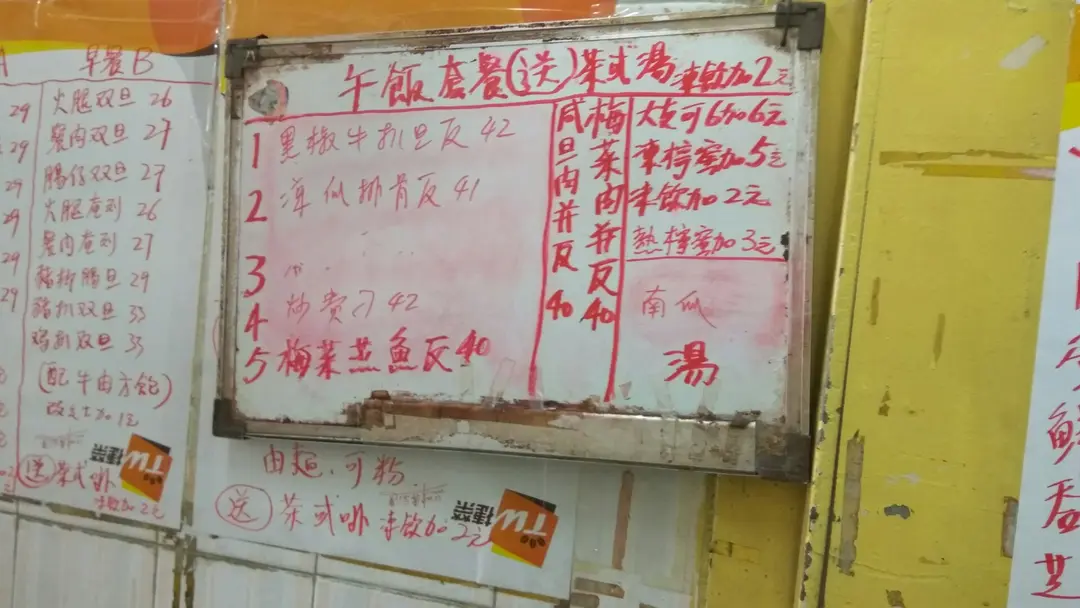 早餐B
29 火腿双旦 26
29 蟹肉双旦 27
29 腸仔双旦 27
29 火腿奄列 26
29 蟹肉奄列 27
29 豬柳腸旦 29
豬扒双旦 33
鸡扒双旦 33
(配牛由方飽)
加1元
送 茶或啡
凍飲加2元
捷榮
TW
午飯套餐(送)茶或湯 凍飲加2元
1 黑椒牛扒旦反 42
2 排骨反 41
3
4 炒贵刁 42
5 梅菜蒸魚反 40
咸旦肉并反 40
梅菜肉并反 40
凍檸蜜加5元
凍飲加2元
熱檸蜜加3元
南瓜
湯
由麺.可粉
送 茶或啡 凍飲加2元
捷榮
TW